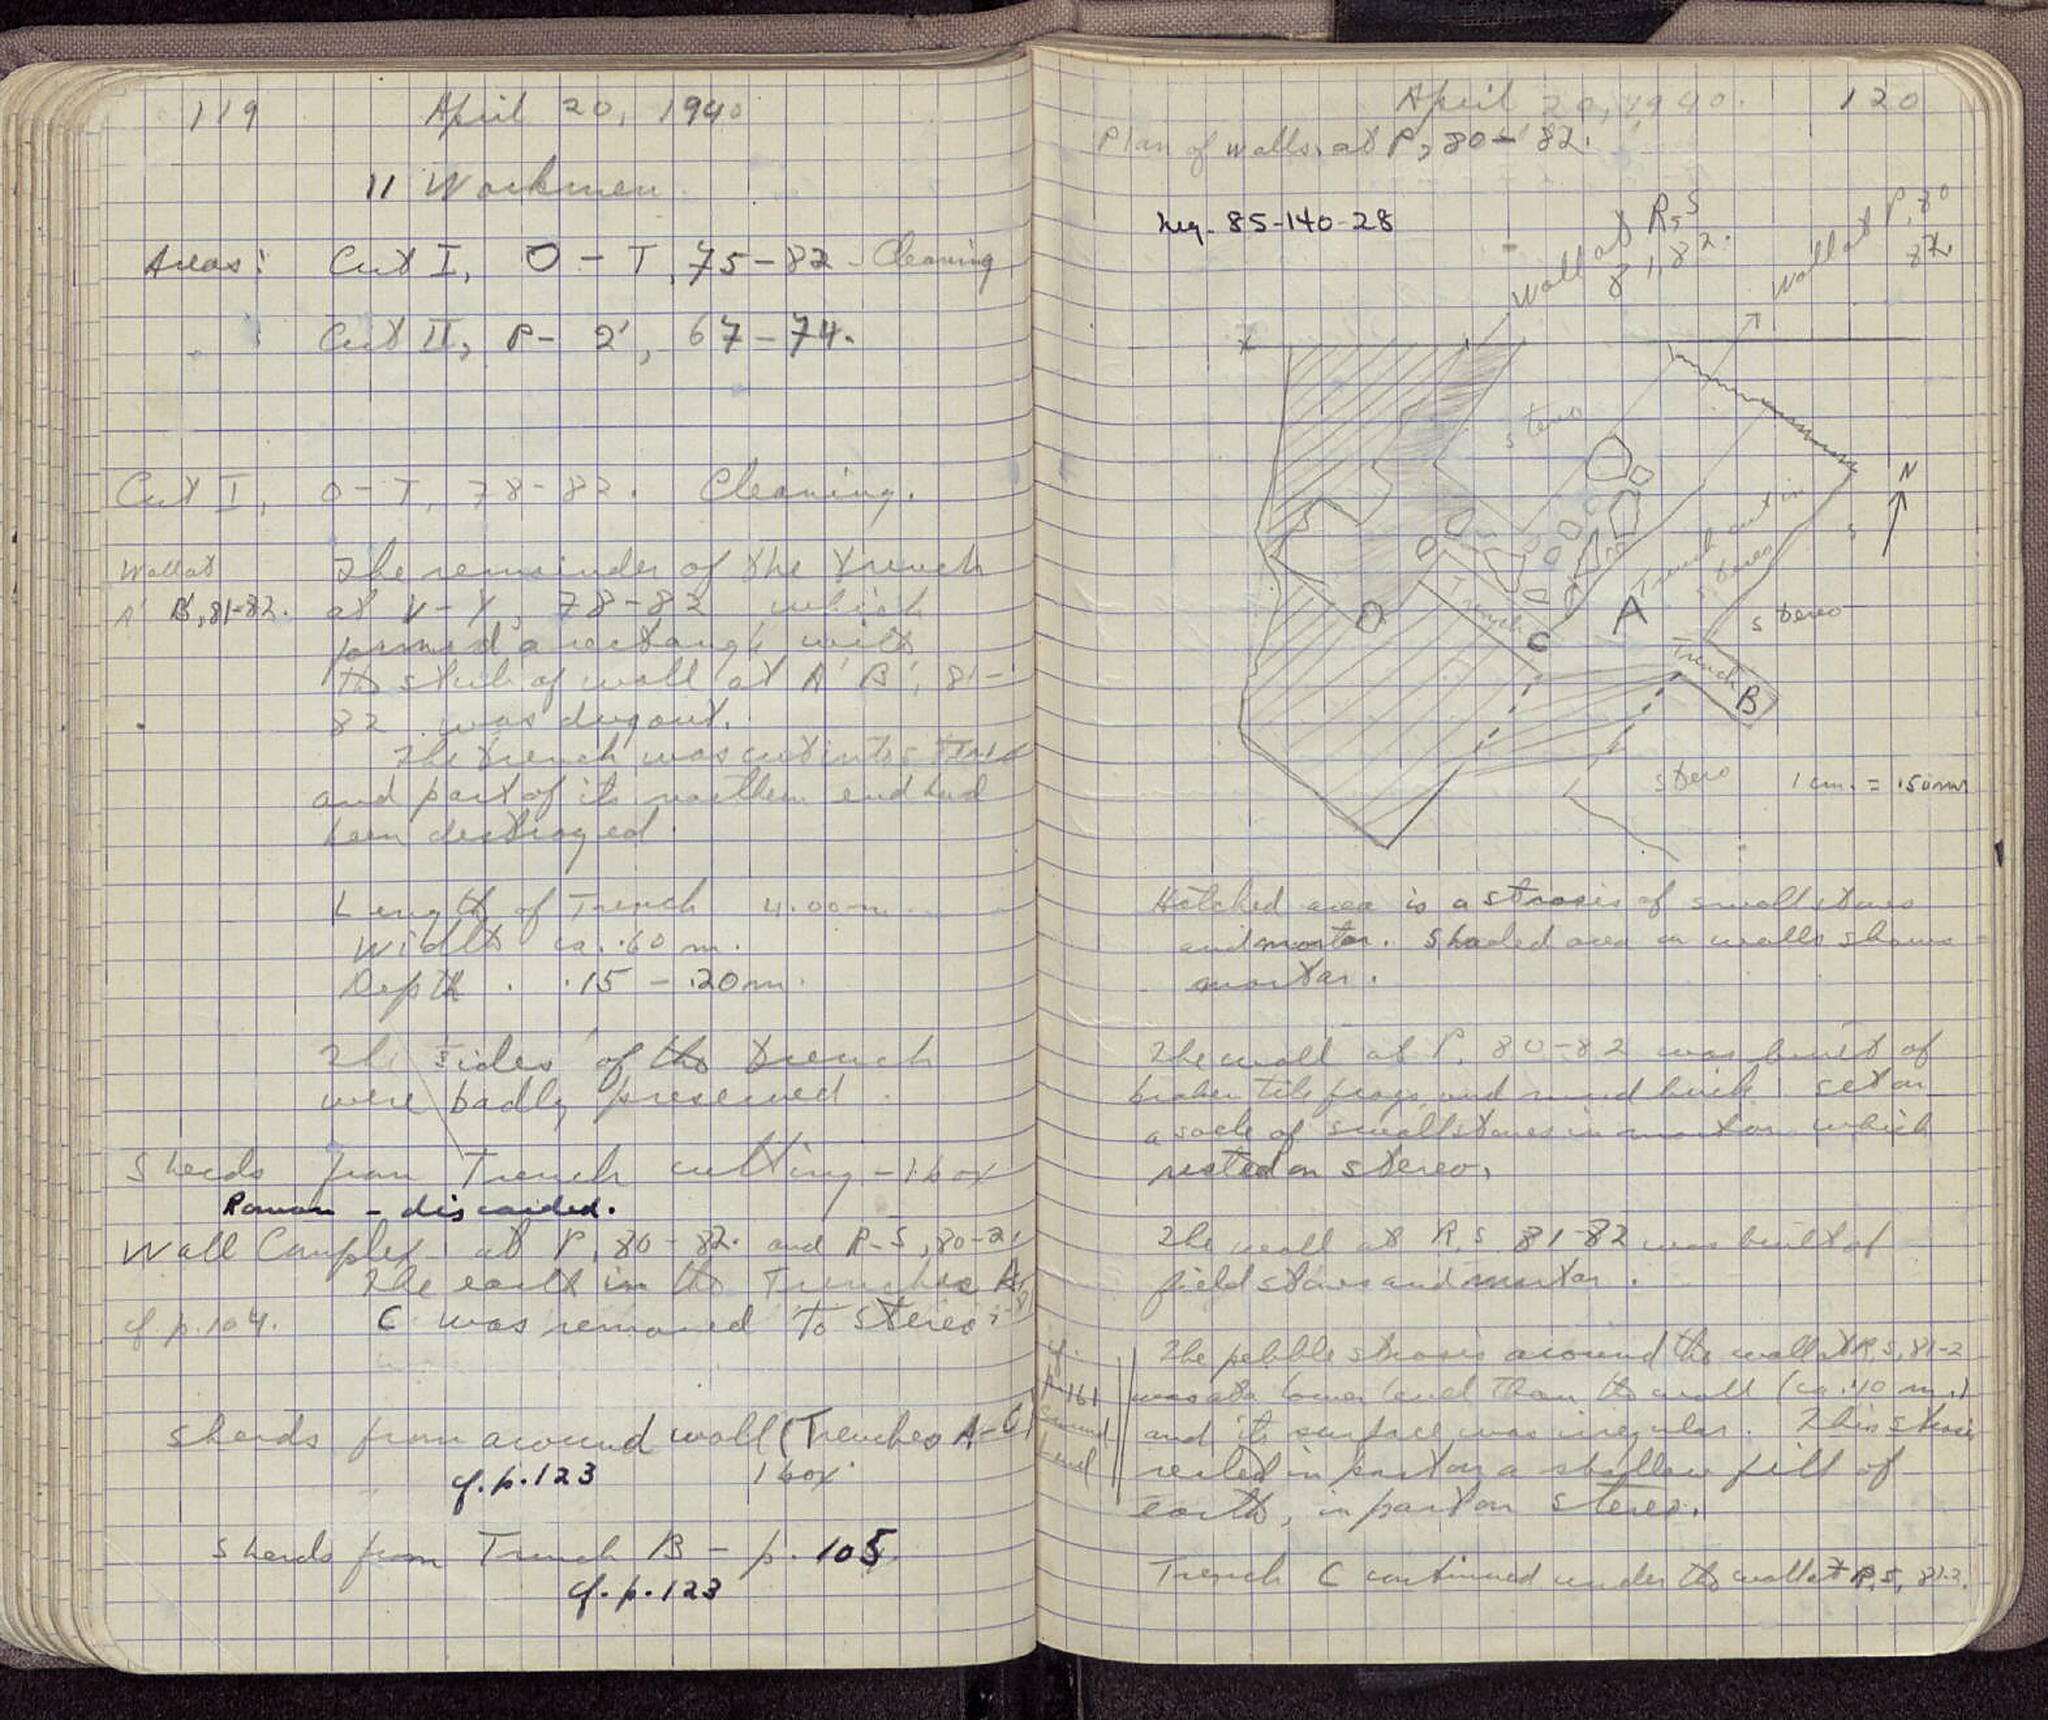 119 April 20, 1940
11 Workmen
Areas: Cut I, O - T, 75-82 - Cleaning
Cut II, P - 2', 67-74.
Cut I, O-T, 78-82. Cleaning.
Wall at
A' B', 81-82.
The remainder of the trench
at V-Y, 78-82 which
formed a rectangle with
the stub of wall at A' B', 81-
82 was dug out.
The trench was cut into stereo
and part of its northern end had
been destroyed.
Length of Trench 4.00 m.
Width ca. .60 m.
Depth . .15 - .20 m.
The sides of the trench
were badly preserved.
Sherds from Trench cutting - 1 box
Roman - discarded.
Wall Complex at P, 80-82. and R-S, 80-2.
The earth in the Trenches A,
cf. p. 104. C was removed to stereo.
Sherds from around wall (Trenches A-C)
cf. p. 123 1 box.
Sherds from Trench B - p. 105.
cf. p. 123
April 20, 1940. 120
Plan of walls at P, 80-82.
Neg. 85-140-28
Wall at R, S
81, 82.
Wall at P, 80
82.
stereo
N
Trench cut in
stereo
A
stereo
Trench
C
D
Trench
B
stereo 1 cm. = .50 m
Hatched area is a strosis of small stones
and mortar. Shaded area in walls shows
mortar.
The wall at P, 80-82 was built of
broken tile frags, and mud brick set on
a socle of small stones in mortar which
rested on stereo.
The wall at R, S 81-82 was built of
field stones and mortar.
The pebble strosis around the wall at R, S, 81-2
was at a lower level than the wall (ca. .10 m.)
and its surface was irregular. This strosis
rested in part on a shallow fill of
earth, in part on stereo.
cf.
p. 161
level
Trench C continued under the wall at R, S, 81-2.